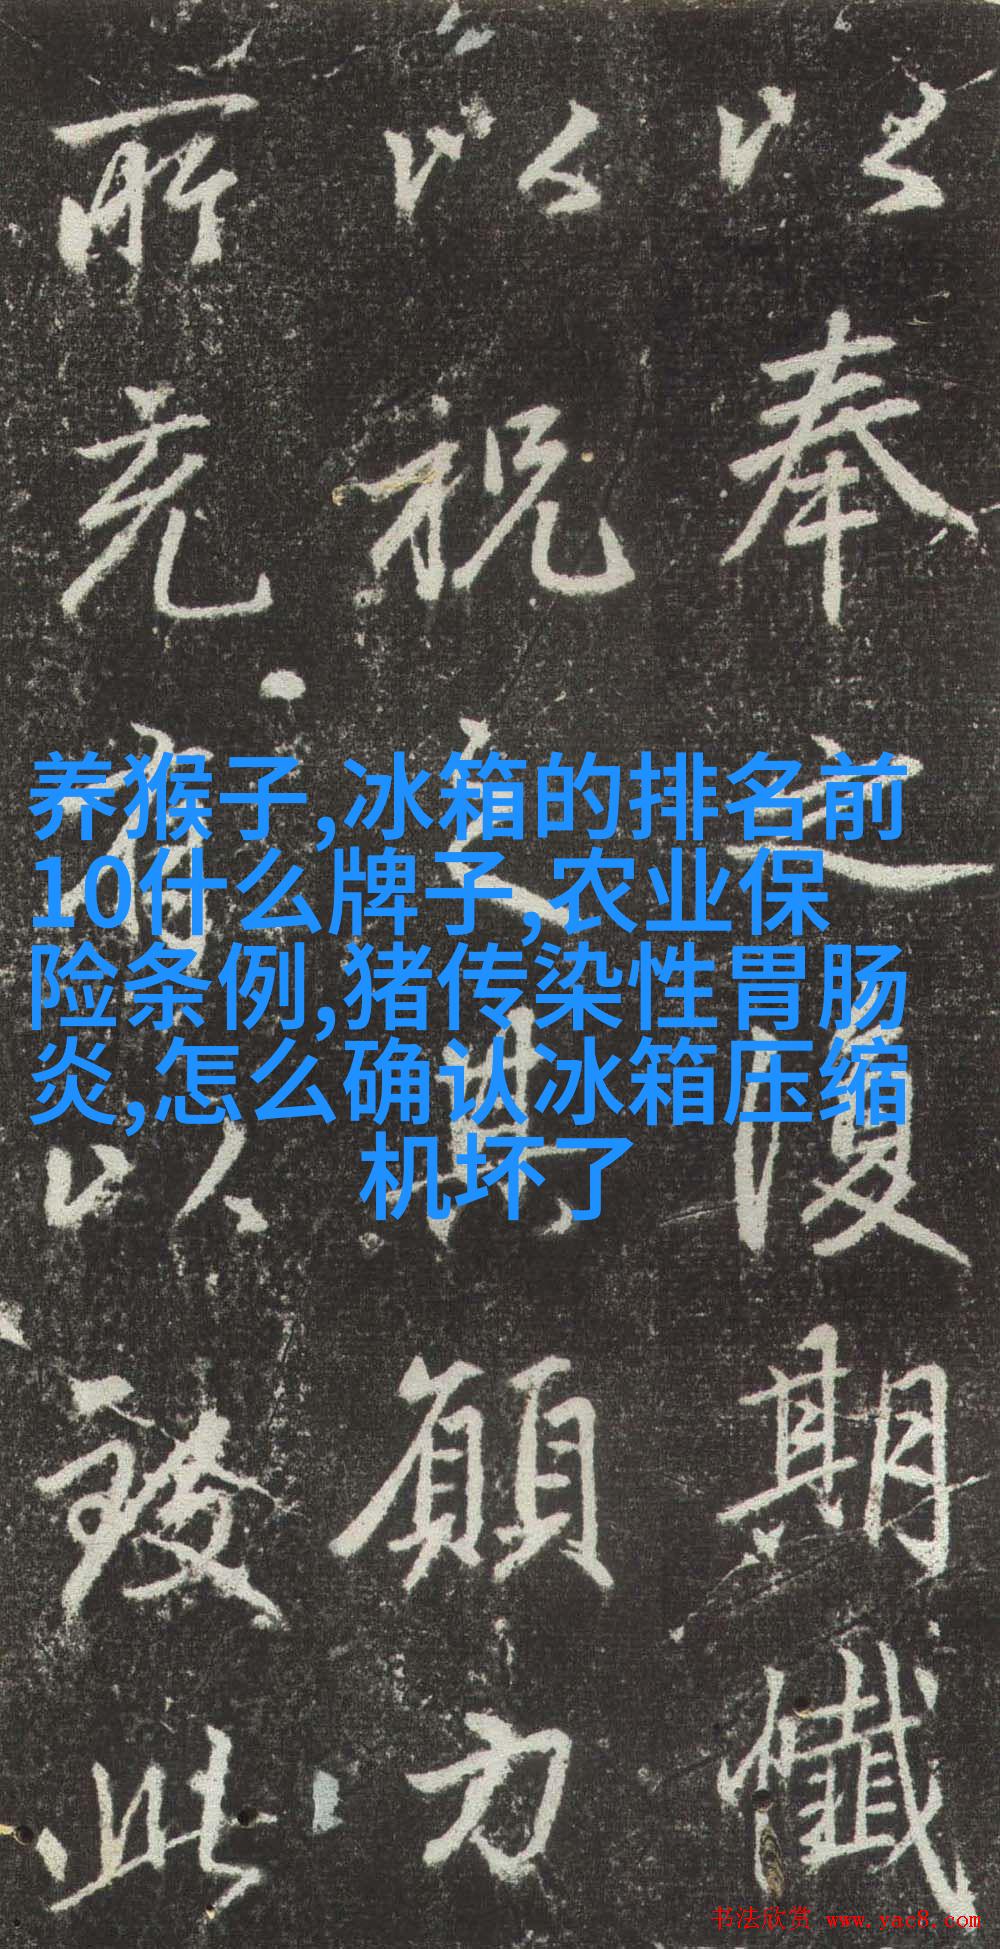 以奉之复期懺
以祝之其願力
所充者以致此
养猴子,冰箱的排名前
10什么牌子,农业保
险条例,猪传染性胃肠
炎,怎么确认冰箱压缩
机坏了
书法欣赏 www.yac8.com